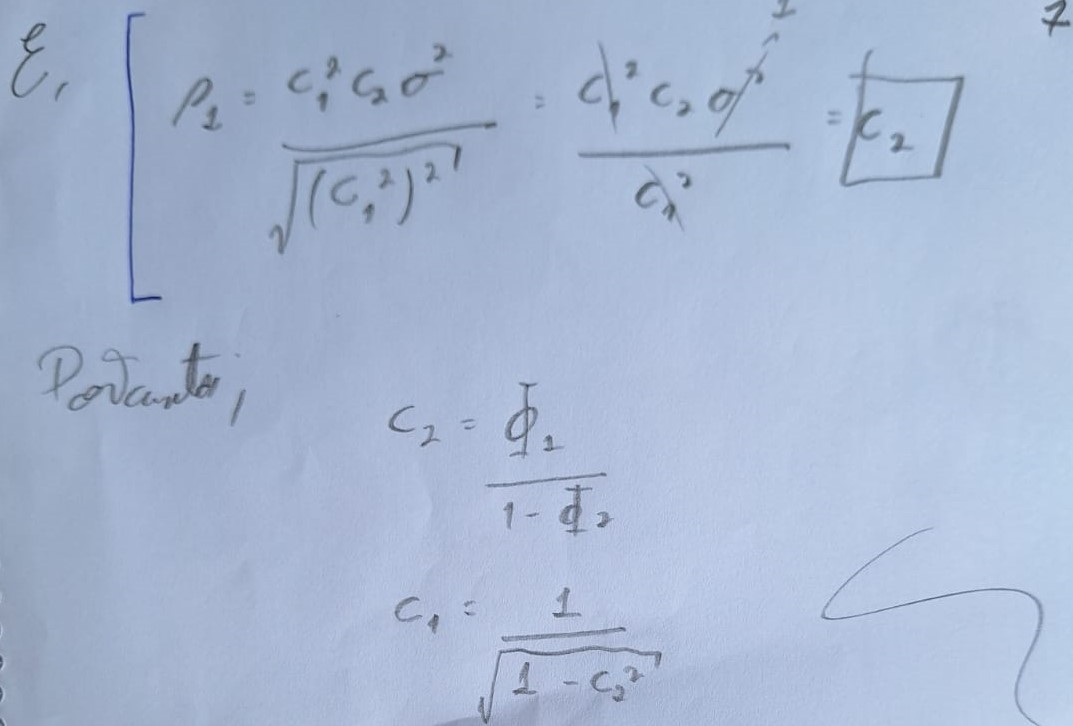 7
E, ρ₁ = c₁² c₂ σ² / √((c₁²)²) = c₁² c₂ σ² / c₁² = c₂
1
Portanto,
c₂ = Φ₁ / (1 - Φ₂)
c₁ = 1 / √(1 - c₂²)